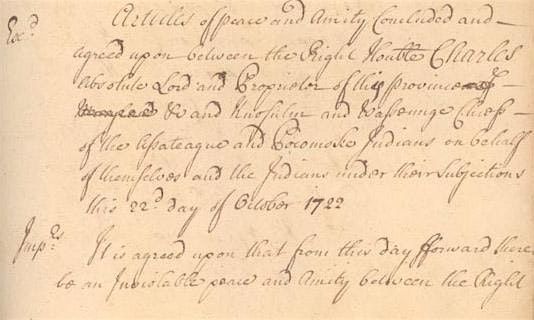 Exd. Articles of peace and Amity Concluded and
agreed upon between the Right Honble Charles
Absolute Lord and Proprietor of this province of
&c and Knosulm and Wassenuge Chiefs
of the Assateague and Pocomoke Indians on behalf
of themselves and the Indians under their Subjections
this 22d day of October 1722
Imps. It is agreed upon that from this day fforward there
be an Inviolable peace and Amity between the Right